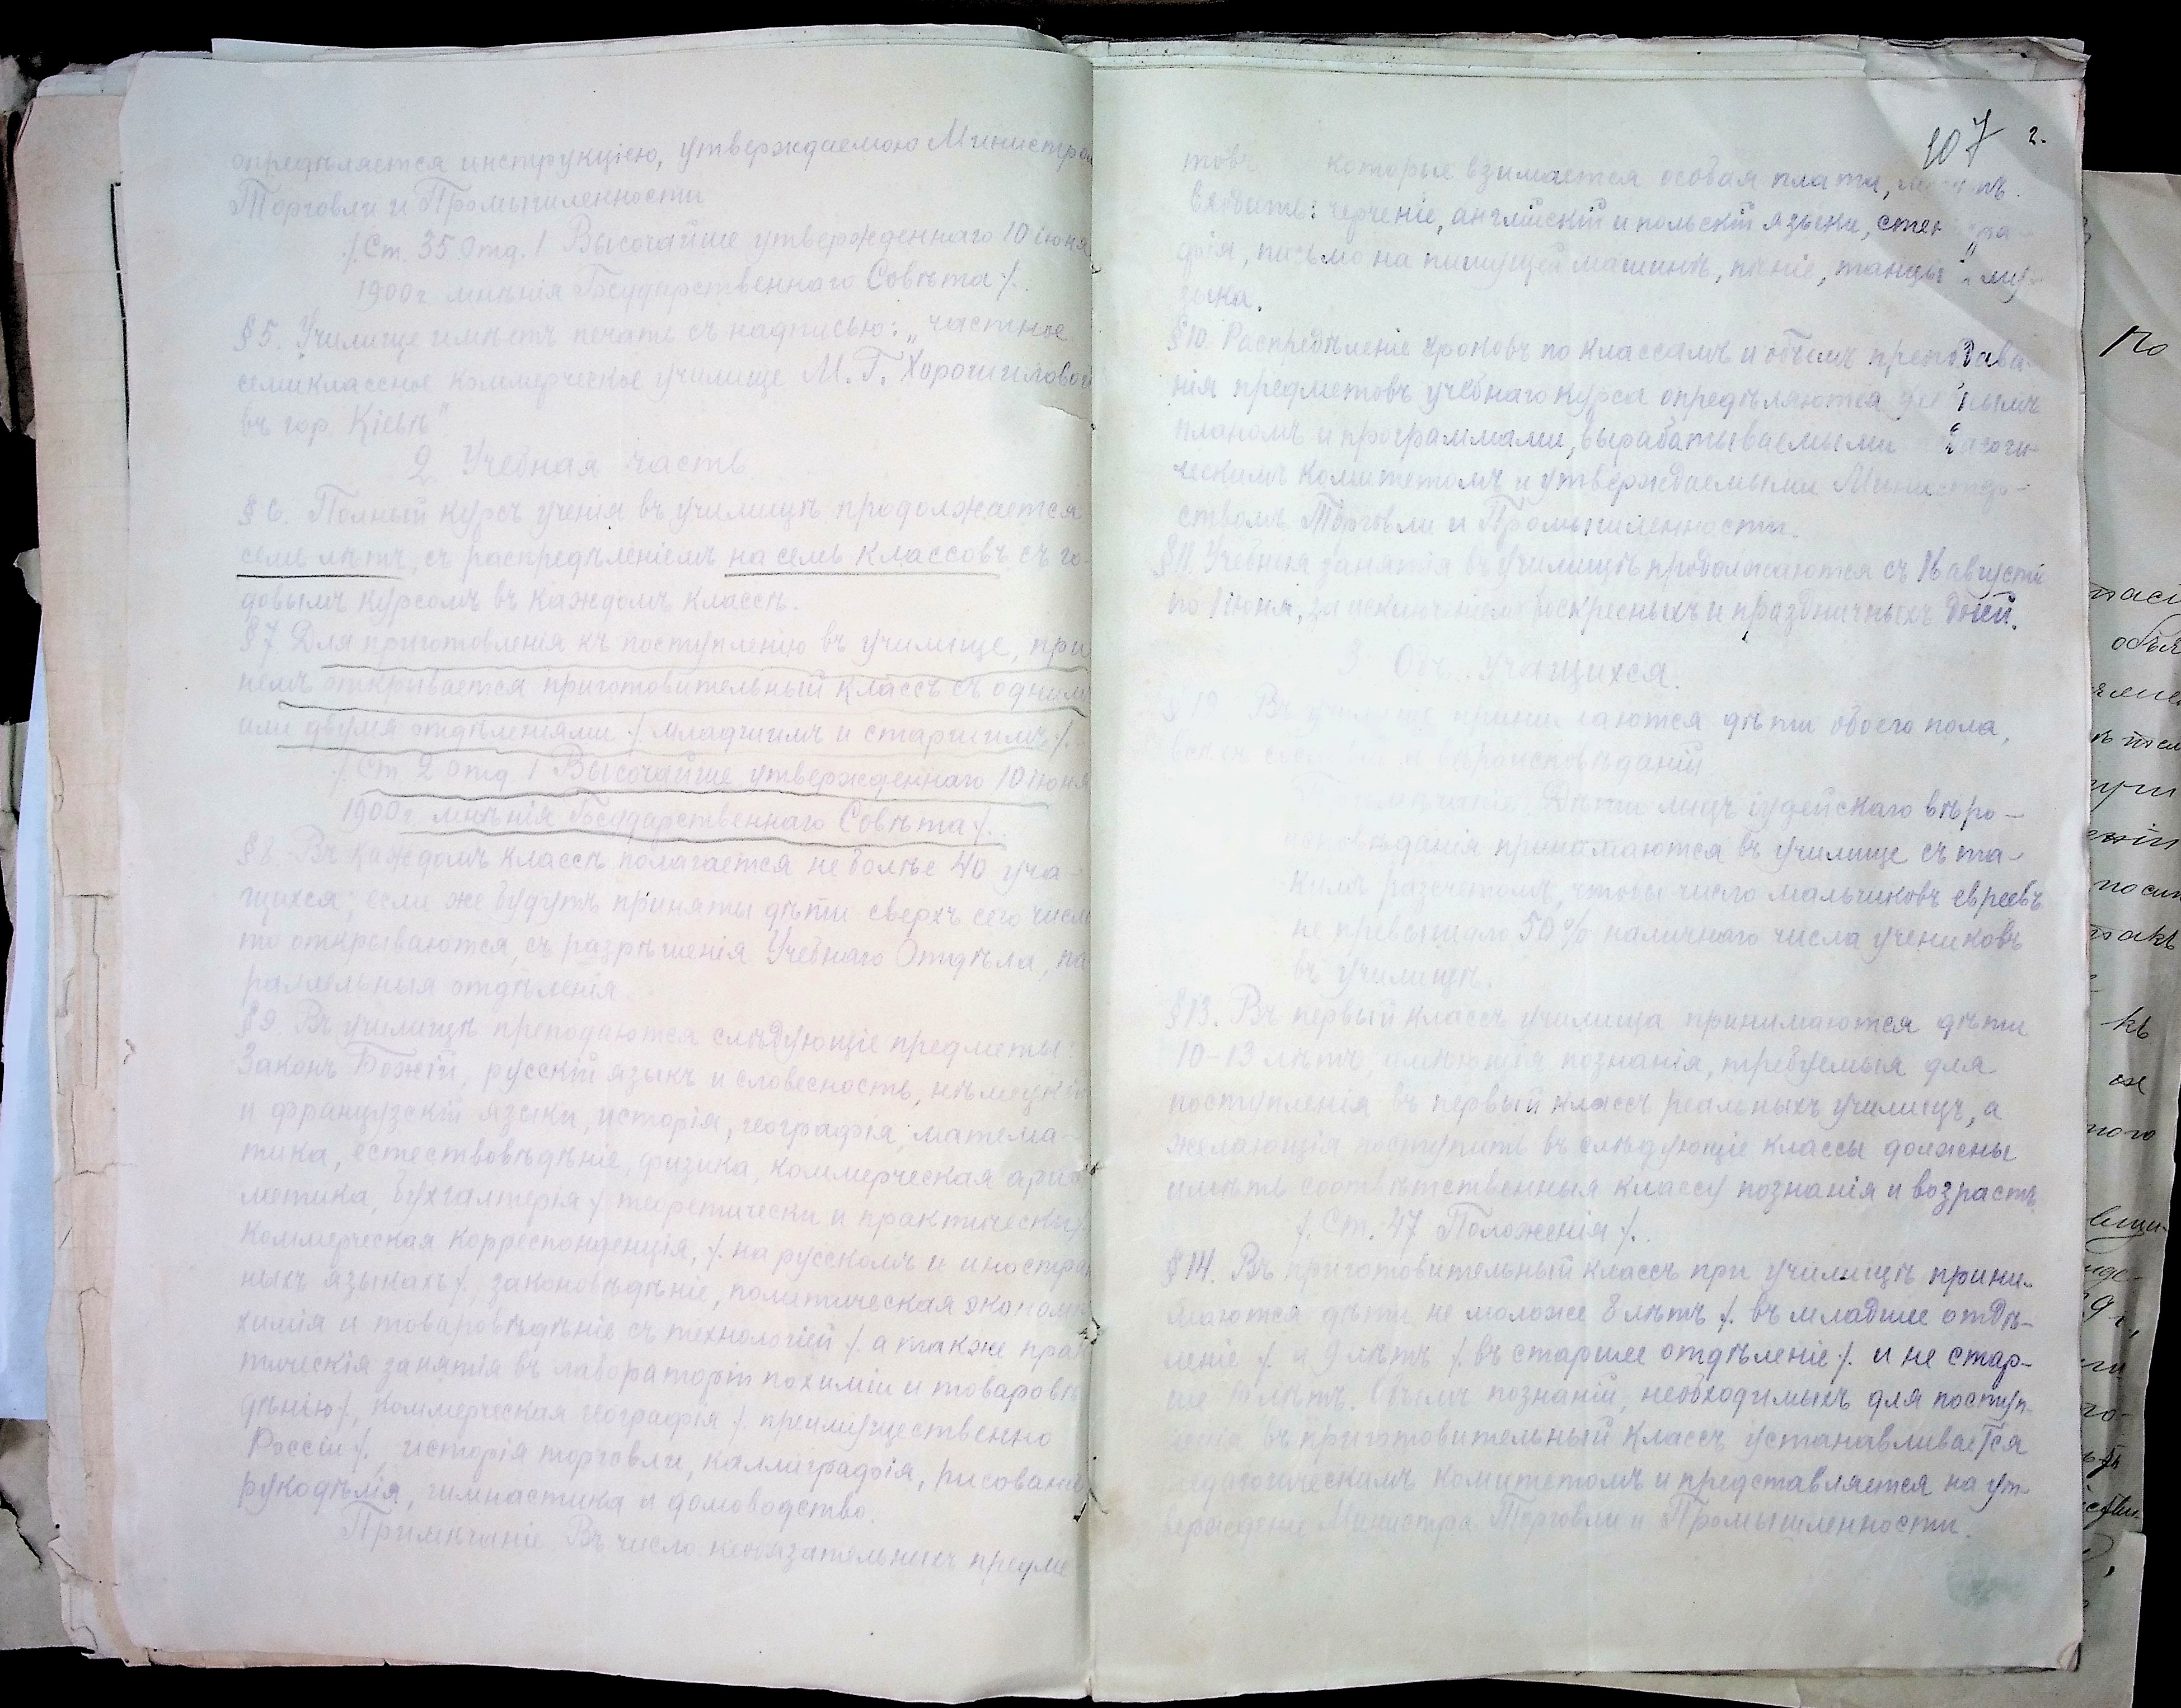 опредѣляется инструкціею, утверждаемою Министром
Торговли и Промышленности
/. Ст. 35 отд. I Высочайше утвержденнаго 10 іюня
1900 г. мнѣнія Государственнаго Совѣта /.
§ 5. Училище имѣетъ печать съ надписью: „частное
семиклассное коммерческое училище М. Г. Хорошиловой
въ гор. Кіевѣ"
2. Учебная часть
§ 6. Полный курсъ ученія въ училищѣ продолжается
семь лѣтъ, съ распредѣленіемъ на семь классовъ съ го-
довымъ курсомъ въ каждомъ классѣ.
§ 7. Для приготовленія къ поступленію въ училище, при
немъ открывается приготовительный классъ съ однимъ
или двумя отдѣленіями /. младшимъ и старшимъ /.
/. Ст. 2 отд. I Высочайше утвержденнаго 10 іюня
1900 г. мнѣнія Государственнаго Совѣта /.
§ 8. Въ каждомъ классѣ полагается не болѣе 40 уча-
щихся; если же будутъ приняты дѣти сверхъ сего числа
то открываются, съ разрѣшенія Учебнаго Отдѣла, па
раллельныя отдѣленія.
§ 9. Въ училищѣ преподаются слѣдующіе предметы:
Законъ Божій, русскій языкъ и словесность, нѣмецкій
и французскій языки, исторія, географія, матема-
тика, естествовѣдѣніе, физика, коммерческая ариѳ
метика, бухгалтерія /. теоретически и практически /.
коммерческая корреспонденція, /. на русскомъ и иностран
ныхъ языкахъ /., законовѣдѣніе, политическая экономія
химія и товаровѣдѣніе съ технологіей /. а также прак
тическія занятія въ лабораторіи по химіи и товаровѣ
дѣнію /., коммерческая географія /. преимущественно
Россіи /., исторія торговли, каллиграфія, рисованіе
рукодѣлія, гимнастика и домоводство.
Примѣчаніе. Въ число необязательныхъ предме
107 2.
товъ которые взимается особая плата,
входитъ: черченіе, англійскій и польскій языки, стен гра-
фія, письмо на пишущей машинѣ, пѣніе, танцы и му-
зыка.
§ 10. Распредѣленіе уроковъ по классамъ и объемъ преподава-
нія предметовъ учебнаго курса опредѣляются учебнымъ
планомъ и программами, вырабатываемыми дагоги-
ческимъ комитетомъ и утверждаемыми Министер-
ствомъ Торговли и Промышленности.
§ 11. Учебныя занятія въ училищѣ продолжаются съ 16 августа
по 1 іюня, за исключеніемъ воскресныхъ и праздничныхъ дней.
3. Объ учащихся.
§ 12. Въ училище принимаются дѣти обоего пола,
всѣхъ сословій и вѣроисповѣданій
Примѣчаніе: Дѣти лицъ іудейскаго вѣро-
исповѣданія принимаются въ училище съ та-
кимъ разсчетомъ, чтобы число мальчиковъ евреевъ
не превышало 50 % наличнаго числа учениковъ
въ училищѣ.
§ 13. Въ первый классъ училища принимаются дѣти
10-13 лѣтъ, имѣющія познанія, требуемыя для
поступленія въ первый классъ реальныхъ училищъ, а
желающія поступить въ слѣдующіе классы должны
имѣть соотвѣтственныя классу познанія и возрастъ
/. Ст. 47 Положенія /.
§ 14. Въ приготовительный классъ при училищѣ прини-
маются дѣти не моложе 8 лѣтъ /. въ младшее отдѣ-
леніе /. и 9 лѣтъ /. въ старшее отдѣленіе /. и не стар-
ше лѣтъ. Объемъ познаній, необходимыхъ для поступ-
ленія въ приготовительный классъ устанавливается
педагогическимъ комитетомъ и представляется на ут-
вержденіе Министра Торговли и Промышленности.
По